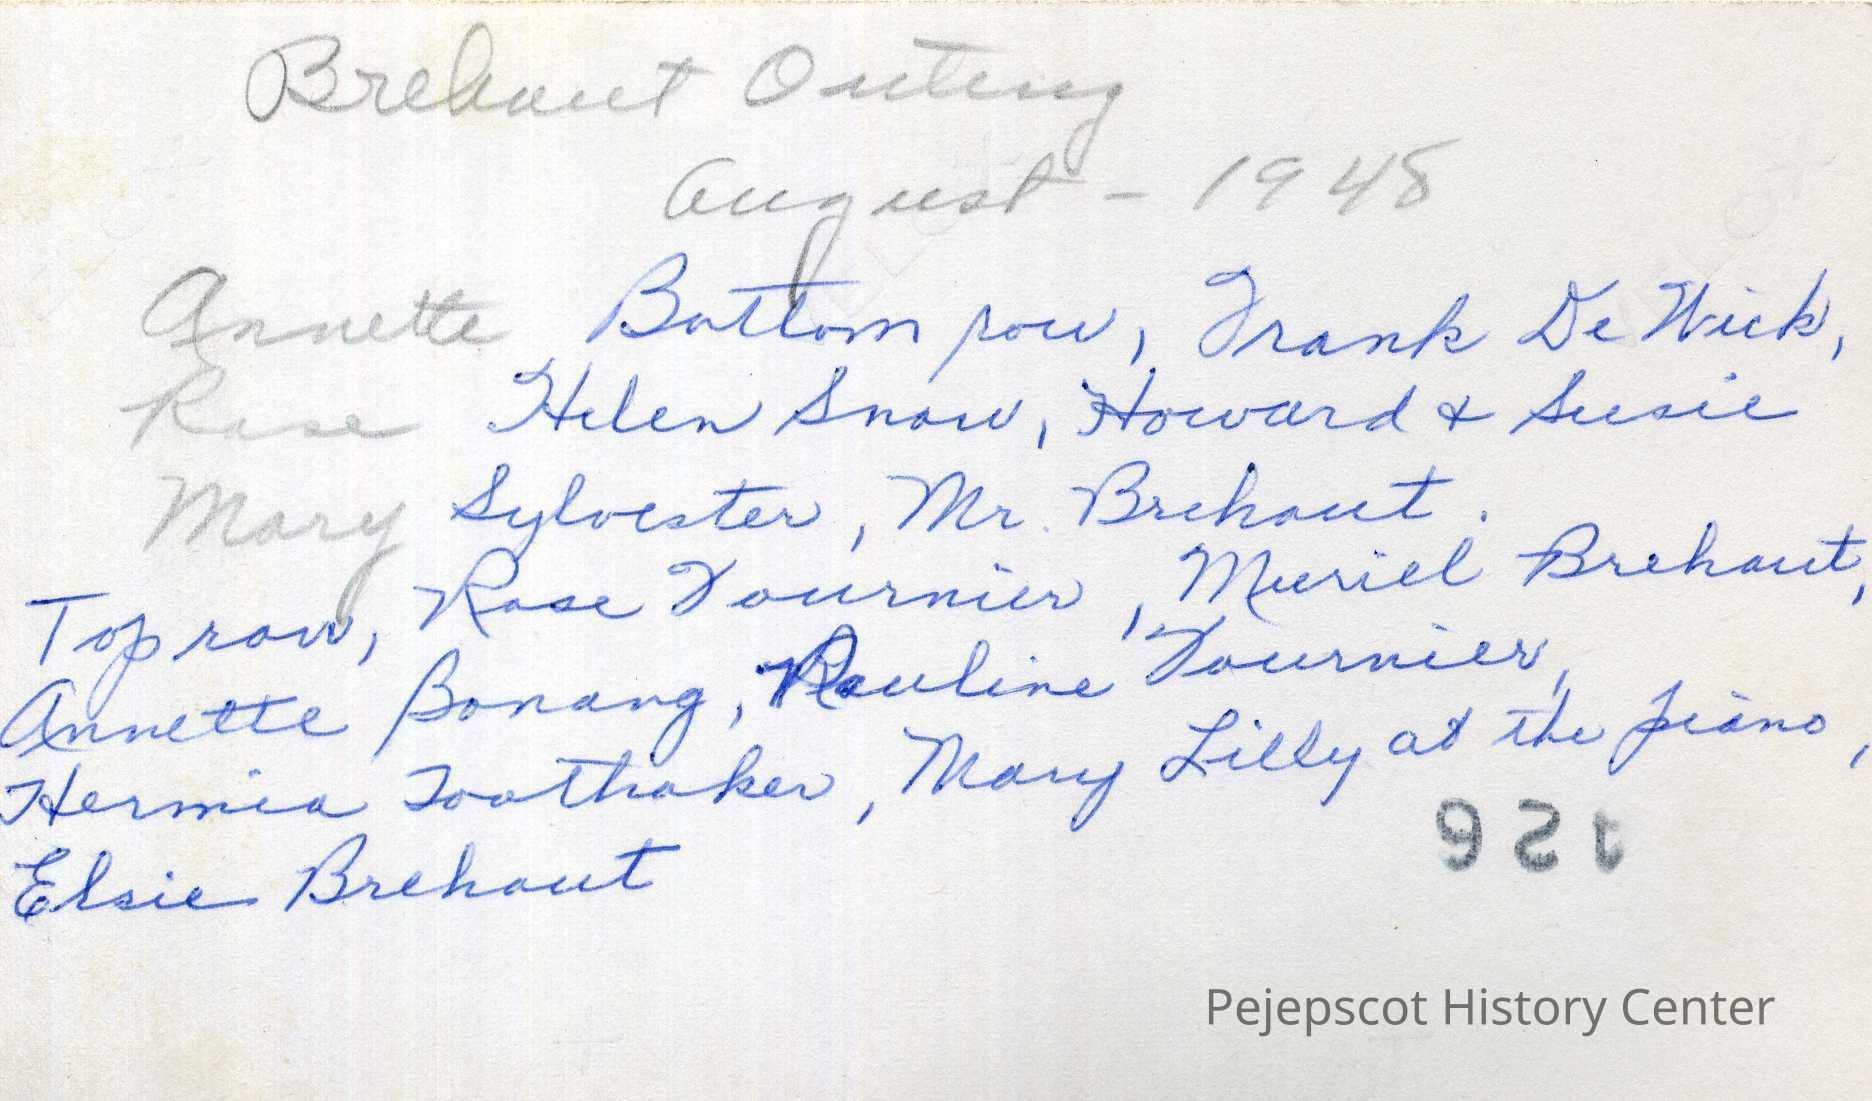 Brehaut Outing
August - 1948
Annette
Rose
Mary
Bottom row, Frank De Wick,
Helen Snow, Howard & Susie
Sylvester, Mr. Brehaut.
Top row, Rose Fournier, Muriel Brehaut,
Annette Bonang, Pauline Fournier,
Hermia Toothaker, Mary Lilly at the piano,
Elsie Brehaut
126
Pejepscot History Center